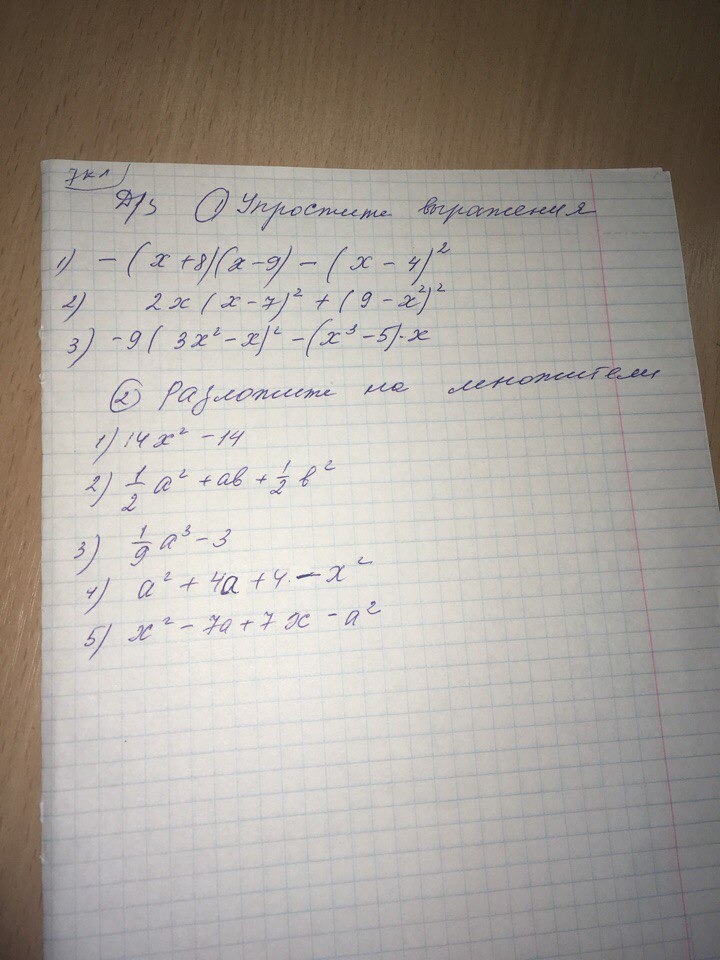 7 кл
Д/з ① Упростите выражения
1) – (x+8)(x–9) – (x – 4)²
2) 2x(x–7)² + (9–x²)²
3) –9(3x²–x)² – (x³–5)·x
② Разложите на множители
1) 14x² –14
2) 1/2 a² + ab + 1/2 b²
3) 1/9 a³ – 3
4) a² + 4a + 4 – x²
5) x² – 7a + 7x – a²